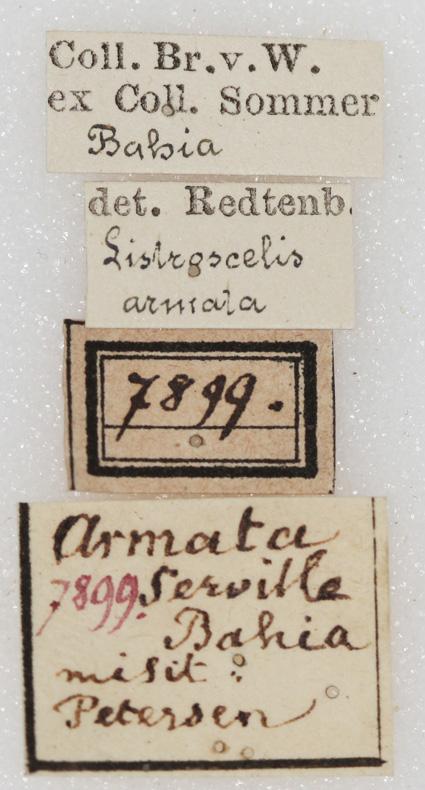 Coll. Br.v.W.
ex Coll. Sommer
Bahia
det. Redtenb.
Listroscelis
armata
7899.
Armata
7899. Serville
Bahia
misit :
Petersen